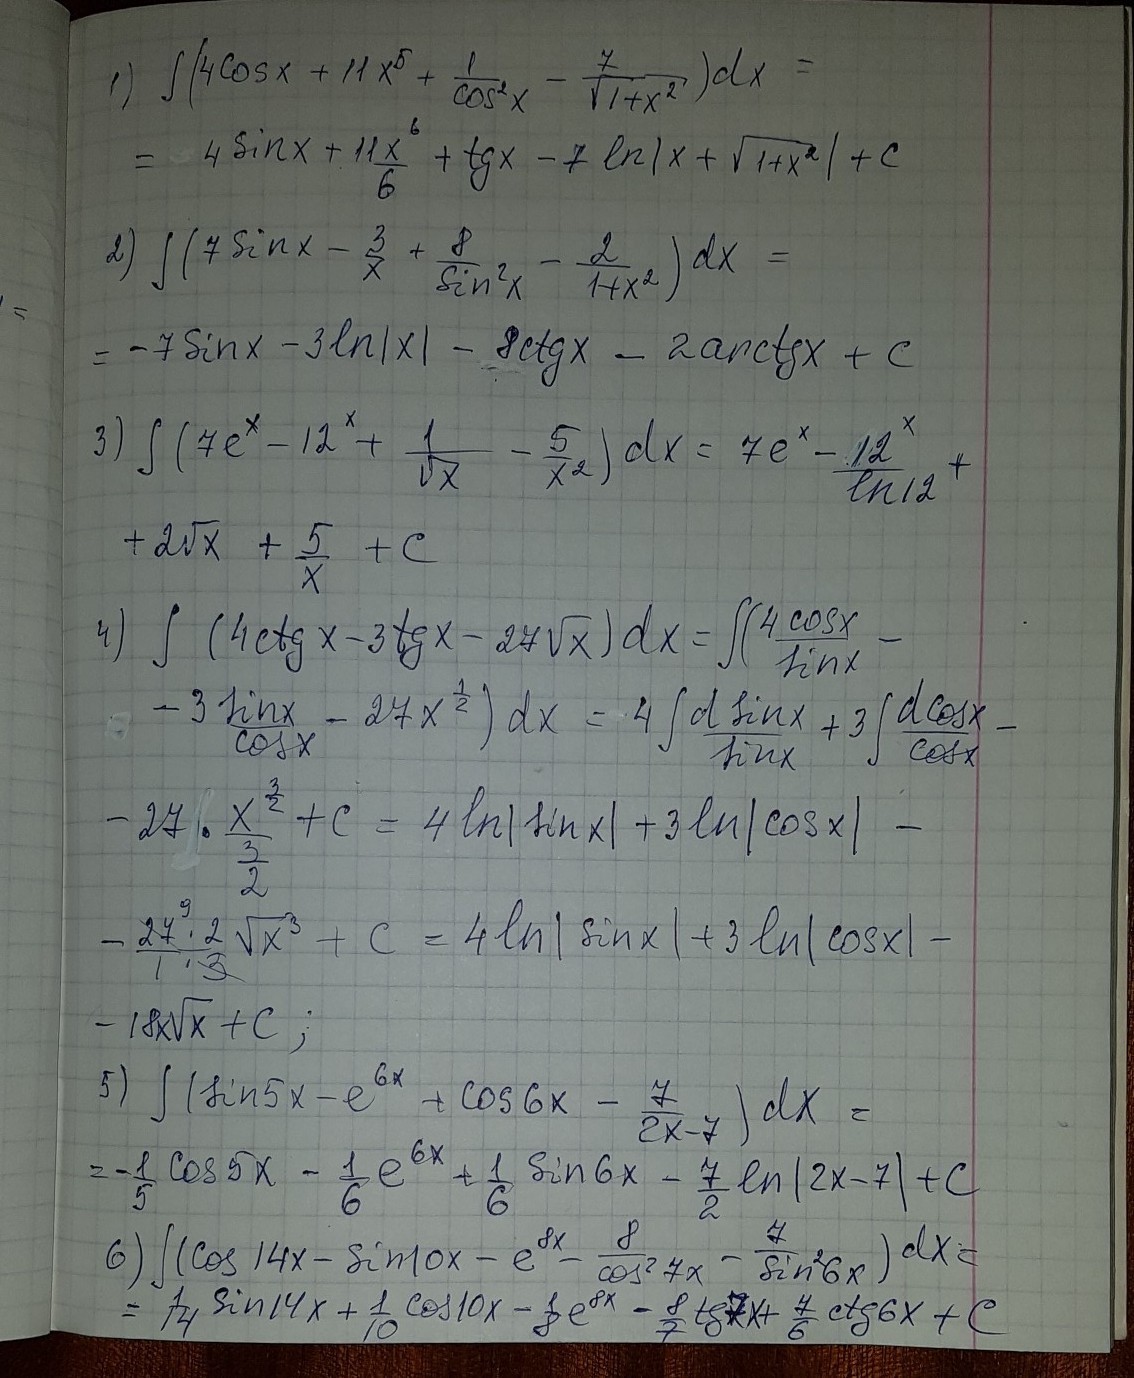 1) ∫(4cosx + 11x⁵ + 1/cos²x − 7/√(1+x²))dx =
= 4sinx + 11x⁶/6 + tgx − 7 ln|x + √(1+x²)| + C
2) ∫(7sinx − 3/x + 8/sin²x − 2/(1+x²))dx =
= −7sinx − 3ln|x| − 8ctgx − 2arctgx + C
3) ∫(7eˣ − 12ˣ + 1/√x − 5/x²)dx = 7eˣ − 12ˣ/ln12 +
+ 2√x + 5/x + C
4) ∫(4ctgx − 3tgx − 27√x)dx = ∫(4cosx/sinx −
− 3 sinx/cosx − 27x^(1/2))dx = 4∫dsinx/sinx + 3∫dcosx/cosx −
− 27 · x^(3/2)/(3/2) + C = 4ln|sinx| + 3ln|cosx| −
− 27⁹·2/1·3 √x³ + C = 4ln|sinx| + 3ln|cosx| −
− 18x√x + C;
5) ∫(sin5x − e^(6x) + cos6x − 7/(2x−7))dx =
= −1/5 cos5x − 1/6 e^(6x) + 1/6 sin6x − 7/2 ln|2x−7| + C
6) ∫(cos14x − sin10x − e^(8x) − 8/cos²7x − 7/sin²6x)dx =
= 1/14 sin14x + 1/10 cos10x − 1/8 e^(8x) − 8/7 tg7x + 7/6 ctg6x + C